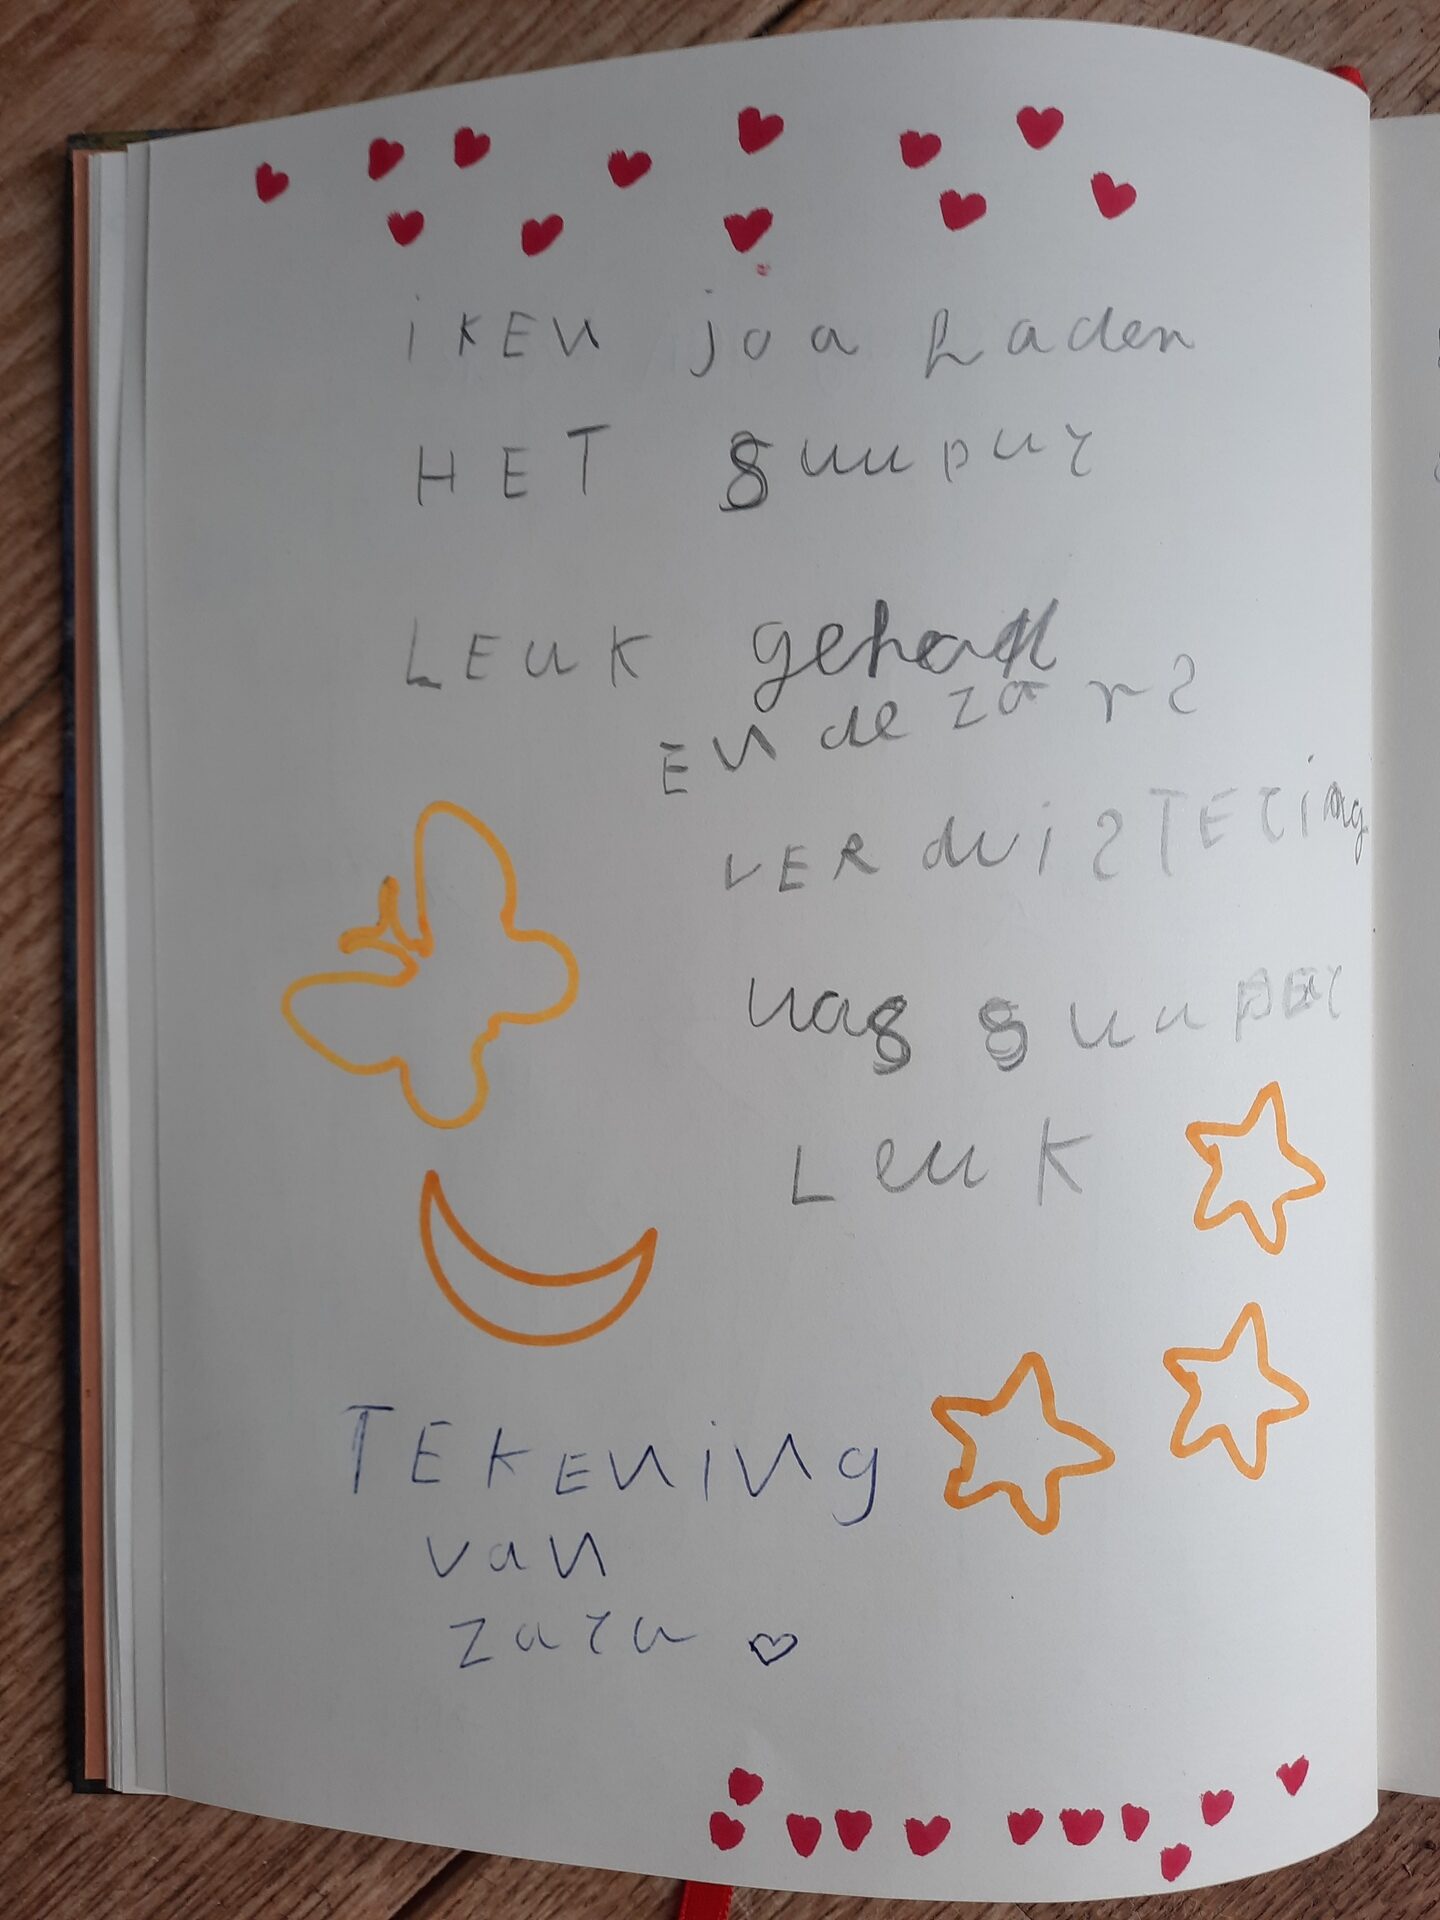 iKEN joa haden
HET suupur
LEUK gehad
EN de zons
VERduiSTERing
was suuper
Leuk
TEKENiNg
vaN
zara